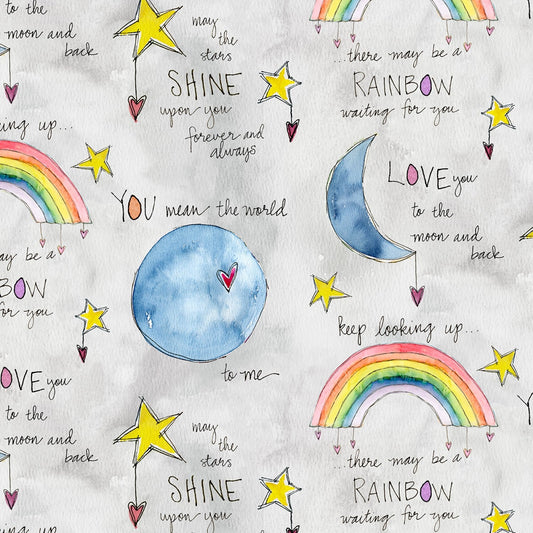 to the
moon and
back
may
the
stars
SHINE
upon you
forever and
always
...there may be a
RAINBOW
waiting for you
ing up...
YOU mean the world
to me
LOVE you
to the
moon and
back
may be a
BOW
for you
keep looking up...
OVE you
to the
moon and
back
may
the
stars
SHINE
upon you
...there may be a
RAINBOW
waiting for you
ing up